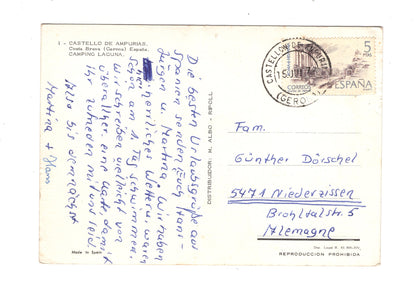 1 - CASTELLO DE AMPURIAS.
Costa Brava (Gerona) España.
CAMPING LAGUNA.
Die besten Urlaubsgrüße aus
Spanien senden Euch Hans-
Jürgen u. Martina. Wir haben
hier herrliches Wetter u. waren
schon am 1. Tag schwimmen.
Wir schreiben vielleicht von
überall her eine Karte, damit
Ihr zufrieden mit uns seid.
Also bis demnächst
Martina +
Made in Spain
DISTRIBUIDOR: - RIPOLL
CASTELLON DE AMPURIAS
(GERONA)
5
PTAS
CORREOS
ESPAÑA
Fam.
Günther Dörschel
5471 Niederzissen
Brohltalstr. 5
Allemagne
REPRODUCCION PROHIBIDA